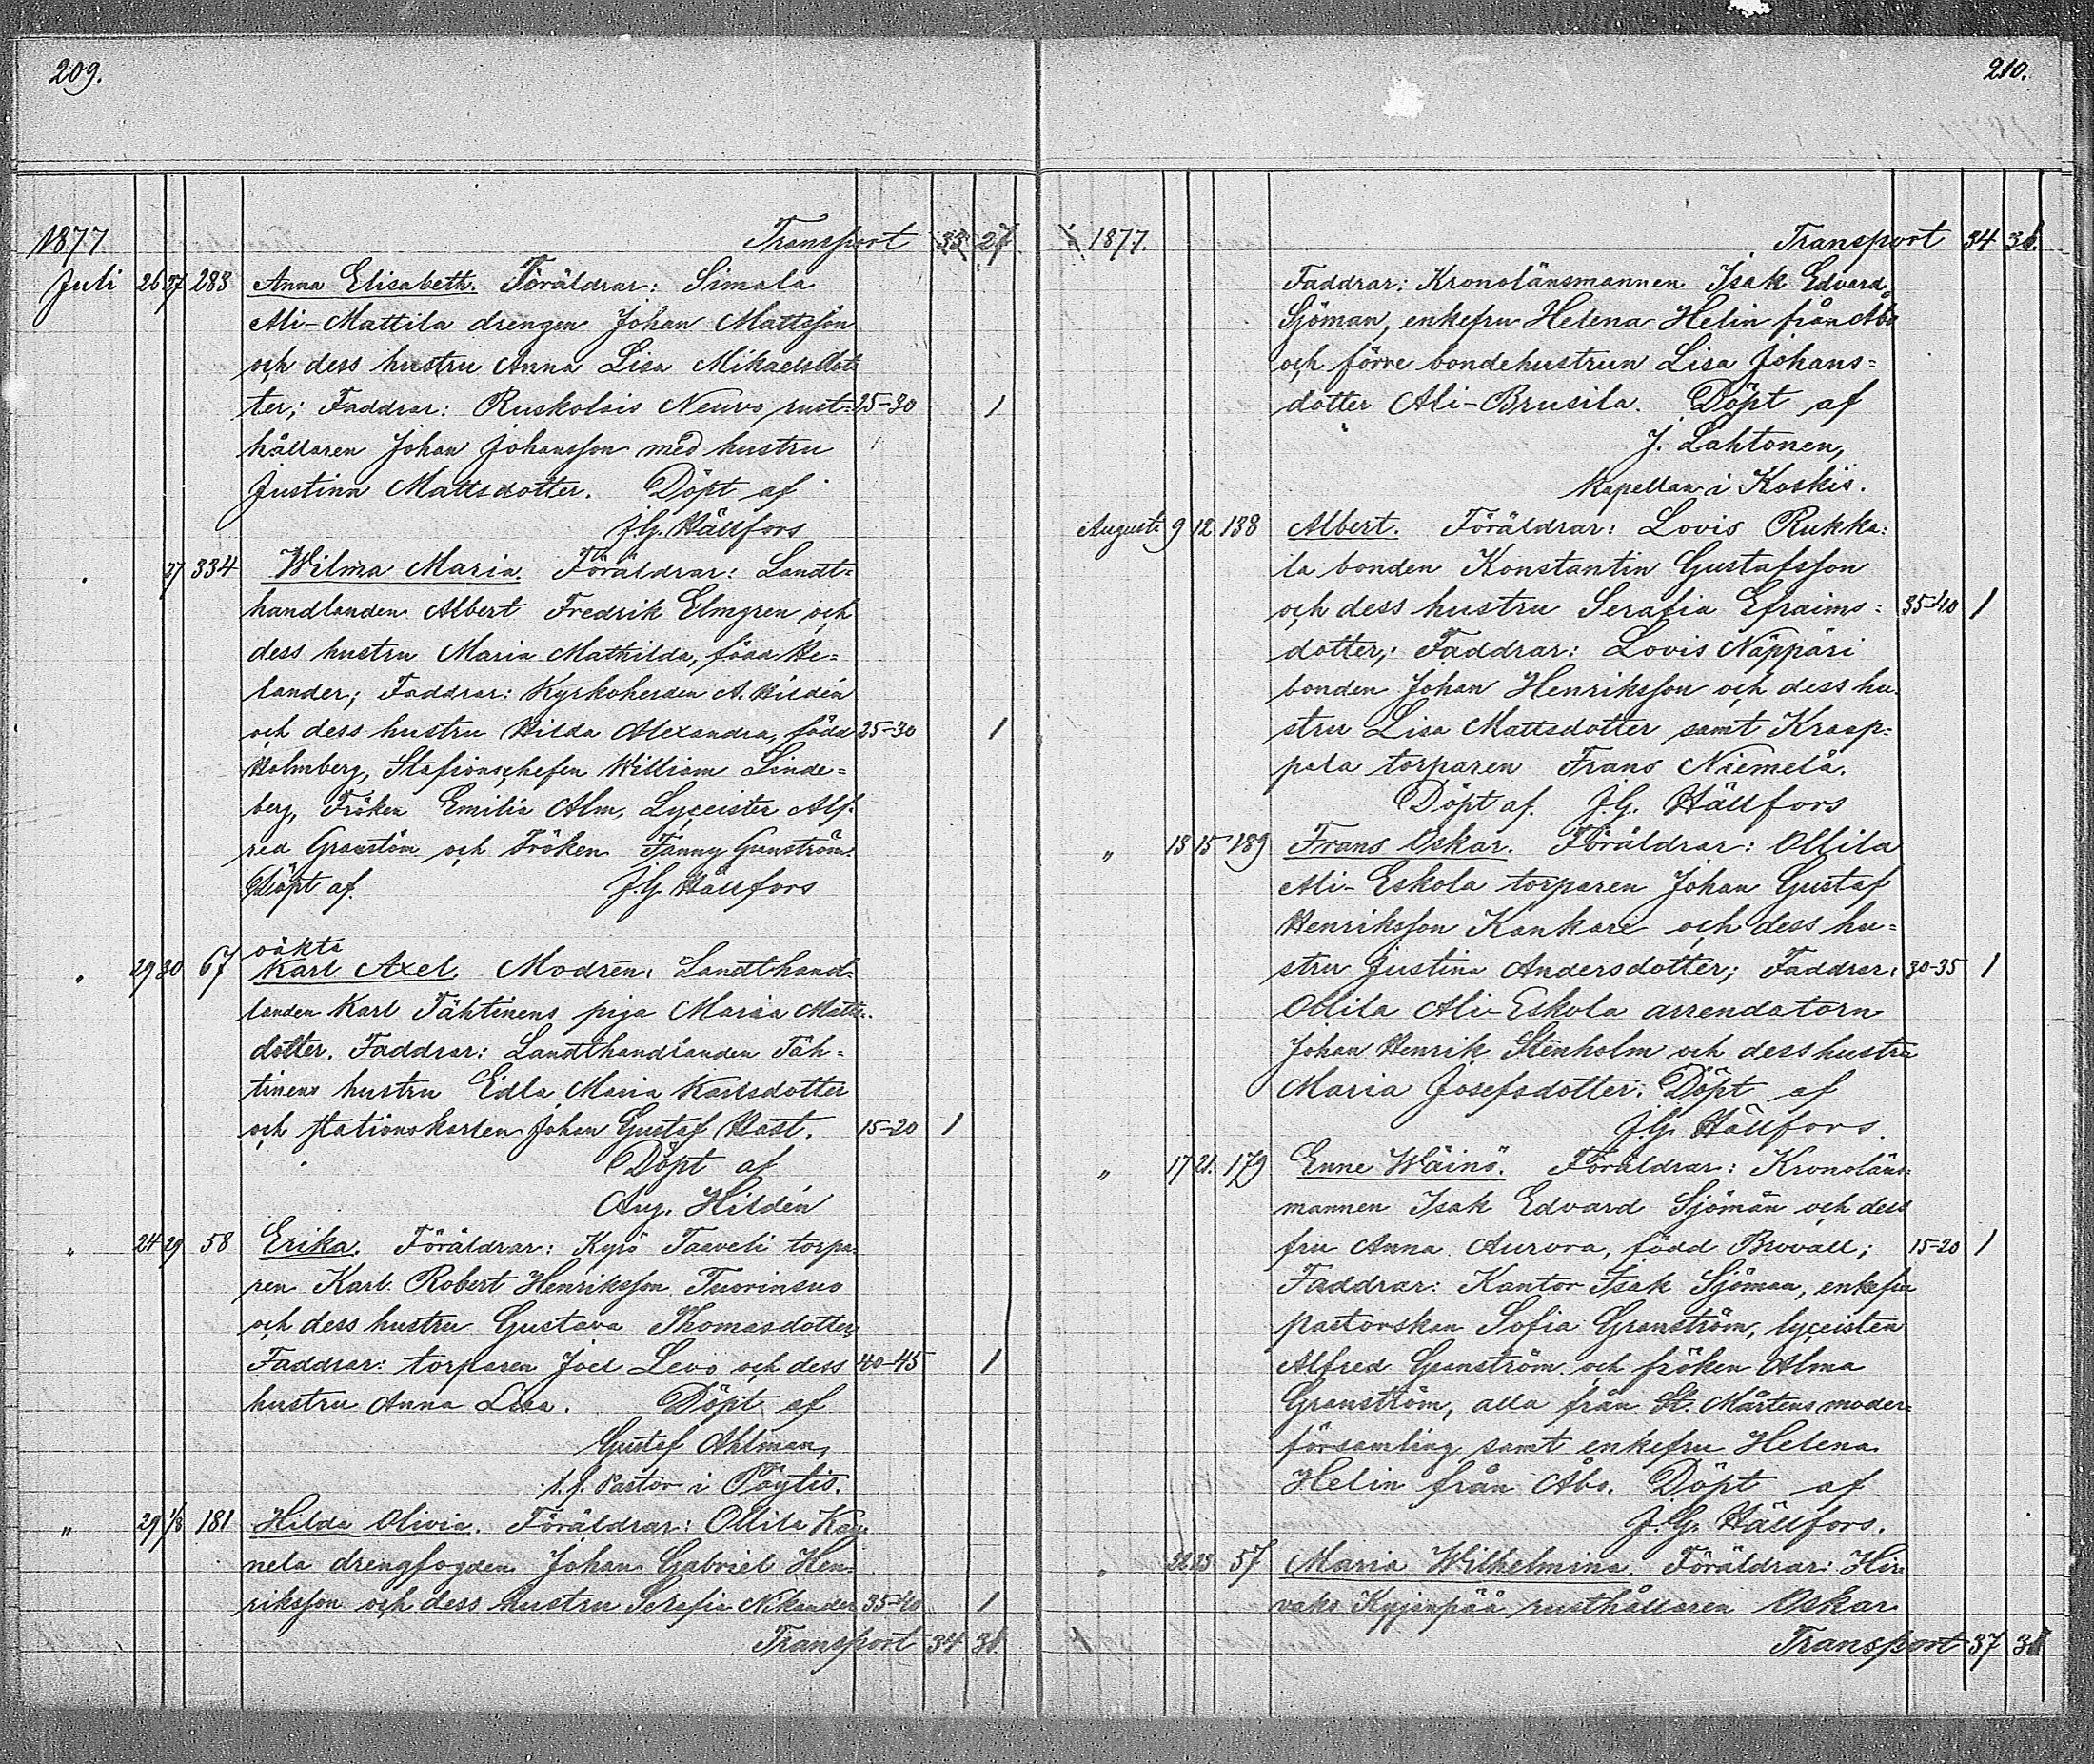 209.
1877 Transport 33 27
Juli 26 27 283 Anna Elisabeth. Föräldrar: Simala
Ali-Mattila drengen Johan Mattsson
och dess hustru Anna Lisa Mikaelsdot-
ter; Faddrar: Ruskolais Neuvo rust- 25-30 1
hållaren Johan Johansson med hustru
Justina Mattsdotter. Döpt af
J.G. Hällfors
27 334 Wilma Maria. Föräldrar: Landt-
handlanden Albert Fredrik Elmgren och
dess hustru Maria Mathilda, född He-
lander; Faddrar: Kyrkoherden A. Hildén
och dess hustru Hilda Alexandra, född 25-30 1
Holmberg, Stationschefen William Linde-
berg, Fröken Emilia Alm, Lyceister Alf-
red Granström och Fröken Fanny Granström.
Döpt af. J.G. Hällfors
oäkta
29 30 67 Karl Axel. Modren: Landthand-
landen Karl Tähtinens piga Maria Matts-
dotter. Faddrar: Landthandlanden Täh-
tinens hustru Edla Maria Karlsdotter
och stationskarlen Johan Gustaf Hast. 15-20 1
Döpt af
Aug. Hildén
" 24 29 58 Erika. Föräldrar: Kyrö Taaveli torpa-
ren Karl Robert Henriksson Tuorinsuo
och dess hustru Gustava Thomasdotter;
Faddrar: torparen Joel Levo och dess 40-45 1
hustru Anna Lisa. Döpt af
Gustaf Ahlman,
t.f. Pastor i Pöytis.
" 29 1/8 181 Hilda Olivia. Föräldrar: Ollila
nela drengfogden Johan Gabriel Hen-
riksson och dess hustru Serafia Nikander 35-40 1
Transport 34 31.
210.
1877. Transport 34 31.
Faddrar: Kronolänsmannen Isak Edvard
Sjöman, enkefru Helena Helin från Åbo
och förre bondehustrun Lisa Johans-
dotter Ali-Brusila. Döpt af
J. Lahtonen,
Kapellan i Koskis.
Augusti 9 12 138 Albert. Föräldrar: Lovis Rukka-
la bonden Konstantin Gustafsson
och dess hustru Serafia Efraims- 35-40 1
dotter; Faddrar: Lovis Näppäri
bonden Johan Henriksson och dess hu-
stru Lisa Mattsdotter samt Kraap-
pala torparen Frans Niemelä.
Döpt af. J.G. Hällfors
" 13 15 189 Frans Oskar. Föräldrar: Ollila
Ali-Eskola torparen Johan Gustaf
Henriksson Kankare och dess hu-
stru Justina Andersdotter; Faddrar: 30-35 1
Ollila Ali-Eskola arrendatorn
Johan Henrik Stenholm och dess hustru
Maria Josefsdotter. Döpt af
J.G. Hällfors.
" 17 21. 179 Enne Wäinö. Föräldrar: Kronoläns-
mannen Isak Edvard Sjöman och dess
fru Anna Aurora, född Brovall; 15-20 1
Faddrar: Kantor Isak Sjöman, enkefru
pastorskan Sofia Granström, lyceisten
Alfred Granström och fröken Alma
Granström, alla från St. Mårtens moder-
församling samt enkefru Helena
Helin från Åbo. Döpt af
J.G. Hällfors.
57 Maria Wilhelmina. Föräldrar: Hir-
vaks Kujanpää rusthållaren Oskar
Transport 37 31